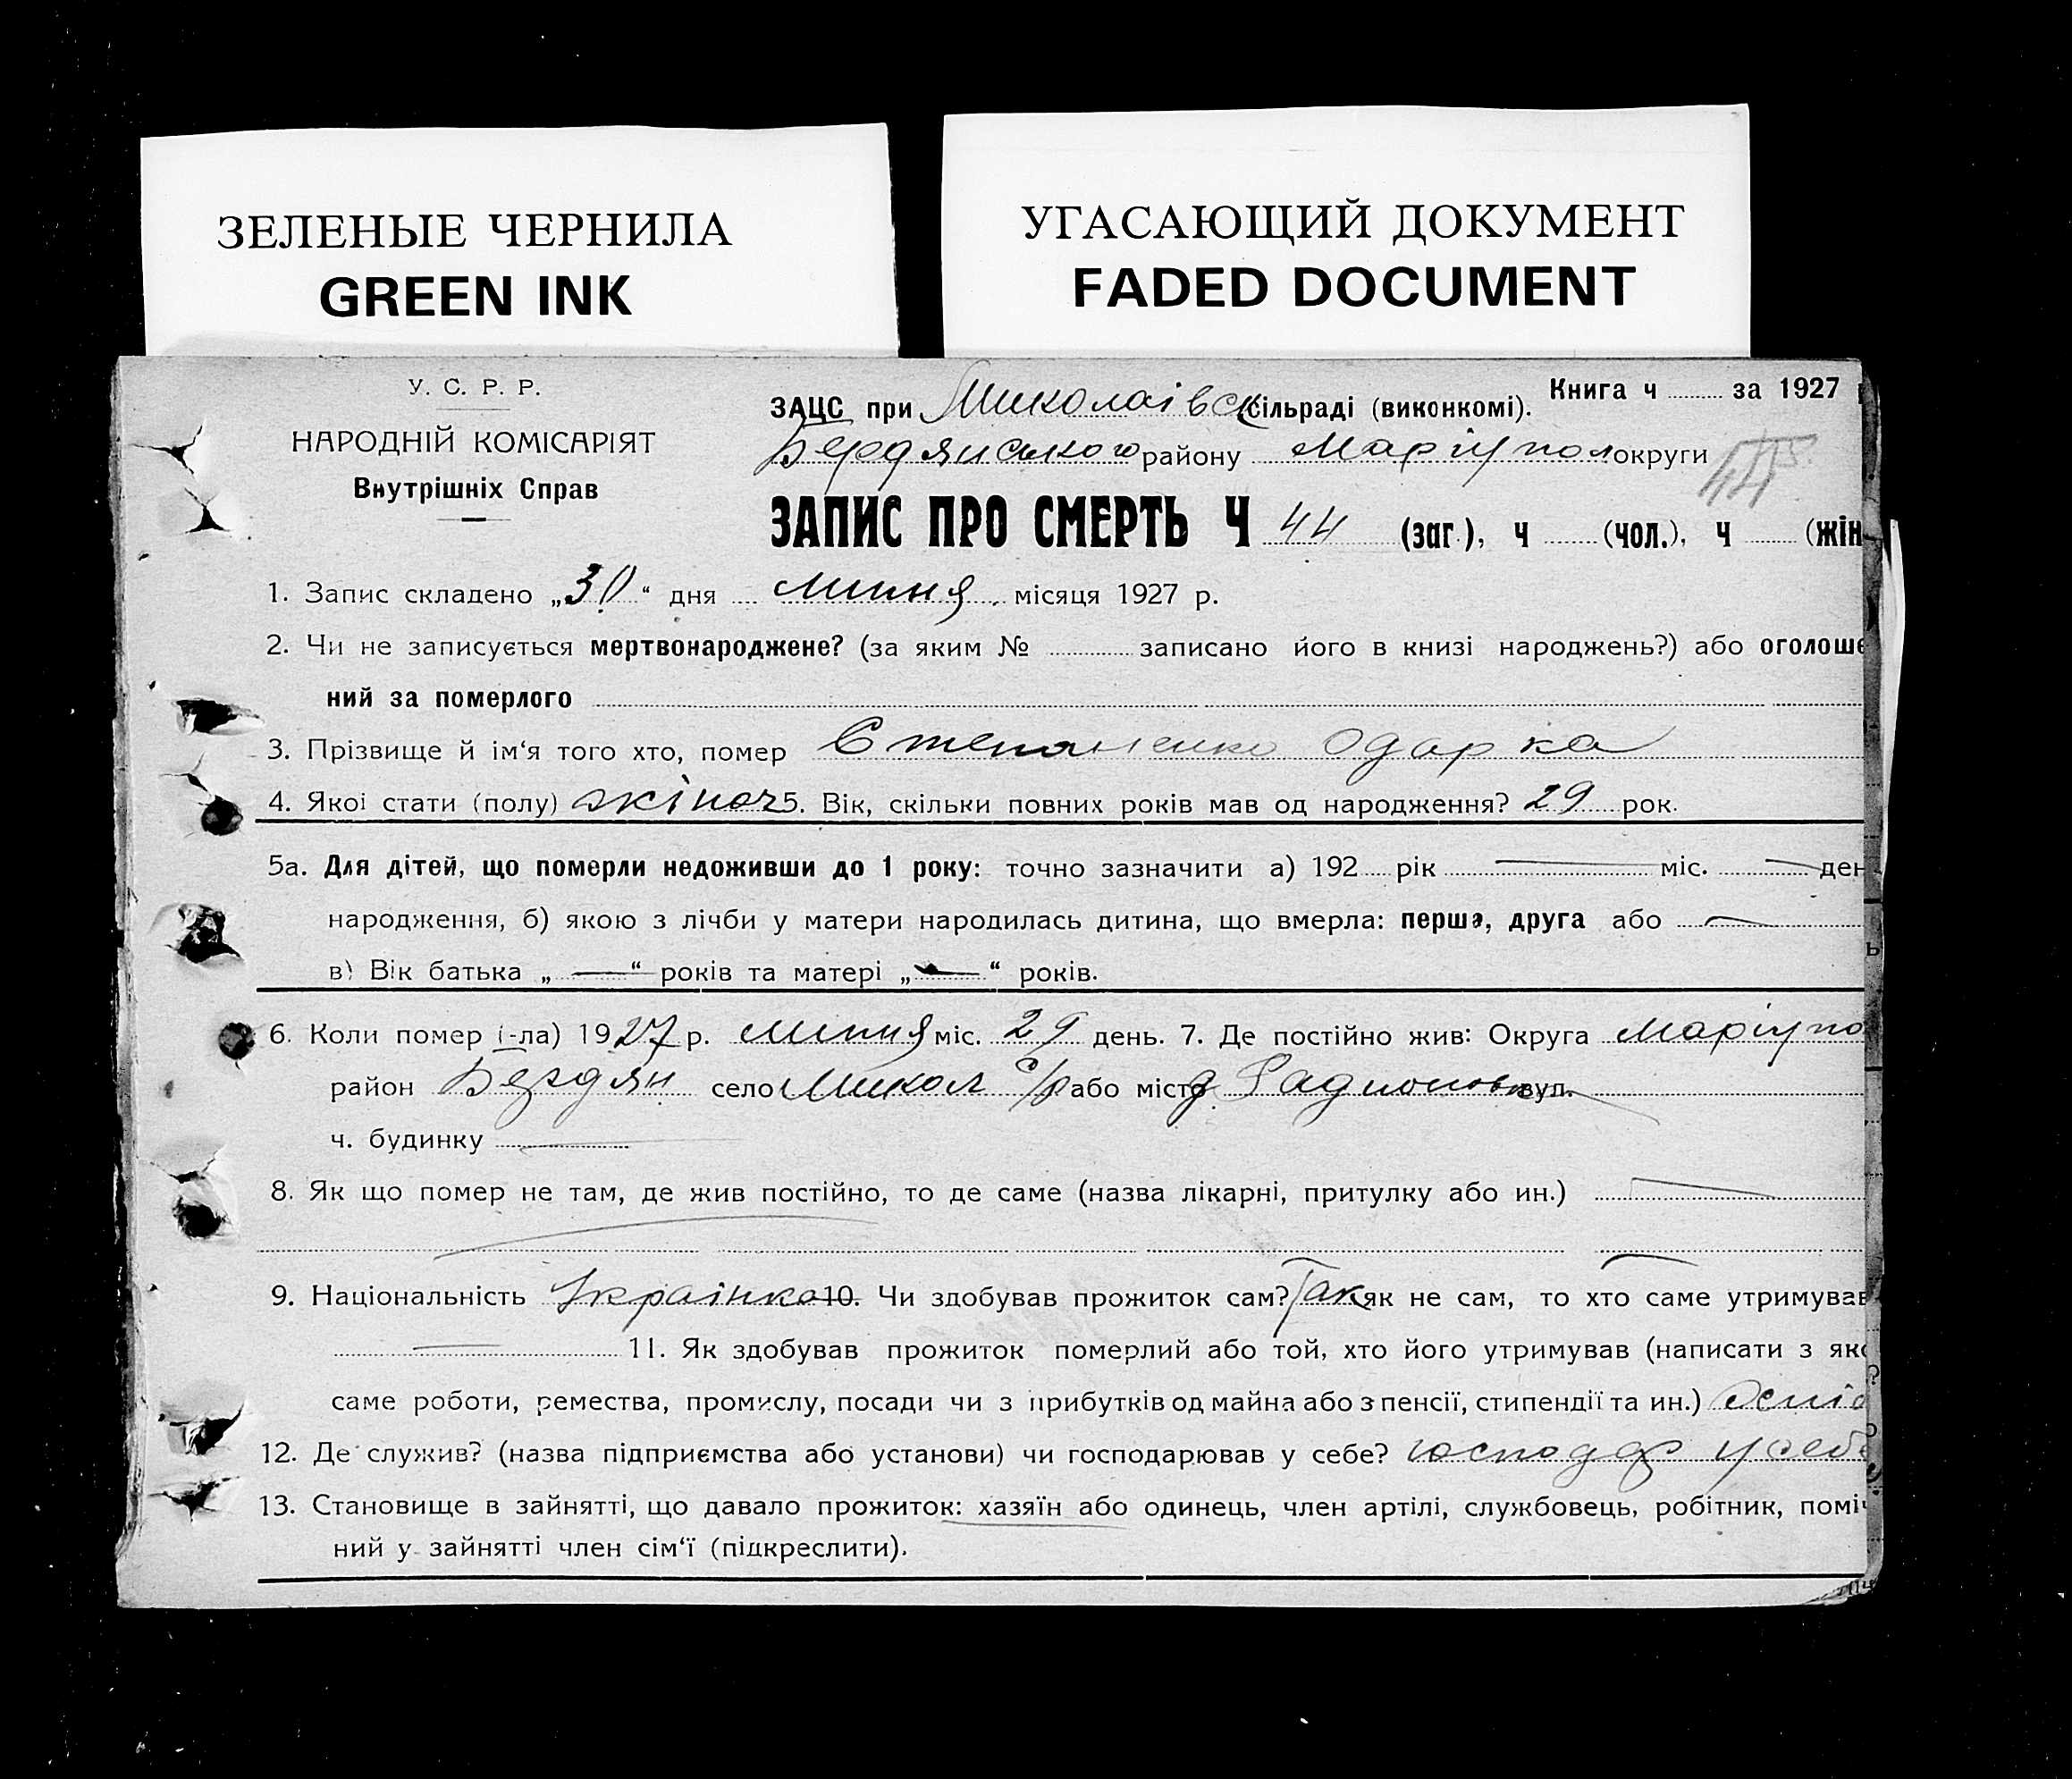 ЗЕЛЕНЫЕ ЧЕРНИЛА
GREEN INK
УГАСАЮЩИЙ ДОКУМЕНТ
FADED DOCUMENT
У. С. Р. Р.
НАРОДНІЙ КОМІСАРІЯТ
Внутрішніх Справ
Книга ч ........ за 1927
ЗАЦС при Миколаівск сільраді (виконкомі).
Бердянського району Маріупол округи
ЗАПИС ПРО СМЕРТЬ Ч 44 (заг.), ч ........ (чол.), ч ........ (жін
1. Запис складено „30“ дня липня місяця 1927 р.
2. Чи не записується мертвонароджене? (за яким № ............ записано його в книзі народжень?) або оголоше
ний за померлого
3. Прізвище й ім‘я того хто, помер Степаненко Одарка
4. Якої стати (полу) жіноч 5. Вік, скільки повних років мав од народження? 29 рок.
5а. Для дітей, що померли недоживши до 1 року: точно зазначити а) 192 рік — міс. — ден
народження, б) якою з лічби у матери народилась дитина, що вмерла: перша, друга або —
в) Вік батька „ — “ років та матері „ — “ років.
6. Коли помер (-ла) 1927 р. липня міс. 29 день. 7. Де постійно жив: Округа Маріупо
район Бердян село Микол с/р або місто д Радионовка вул.
ч. будинку —
8. Як що помер не там, де жив постійно, то де саме (назва лікарні, притулку або ин.) —
9. Національність Українка 10. Чи здобував прожиток сам? Так як не сам, то хто саме утримував
— 11. Як здобував прожиток померлий або той, хто його утримував (написати з яко
саме роботи, ремества, промислу, посади чи з прибутків од майна або з пенсії, стипендії та ин.)
12. Де служив? (назва підприємства або установи) чи господарював у себе? господар у себе
13. Становище в зайнятті, що давало прожиток: хазяїн або одинець, член артілі, службовець, робітник, поміч
ний у зайнятті член сім‘ї (підкреслити).